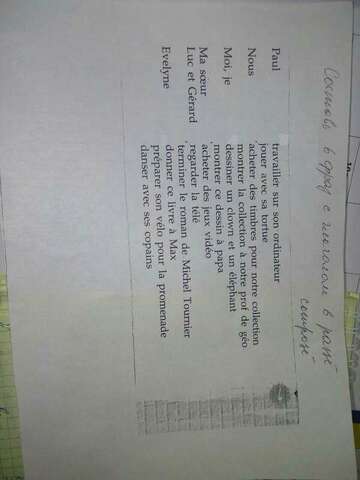 Составь 8 фраз с глаголом в passé
composé
Paul travailler sur son ordinateur
jouer avec sa tortue
Nous acheter des timbres pour notre collection
montrer la collection à notre prof de géo
Moi, je dessiner un clown et un éléphant
montrer ce dessin à papa
Ma sœur acheter des jeux vidéo
Luc et Gérard regarder la télé
terminer le roman de Michel Tournier
Evelyne donner ce livre à Max
préparer son vélo pour la promenade
danser avec ses copains